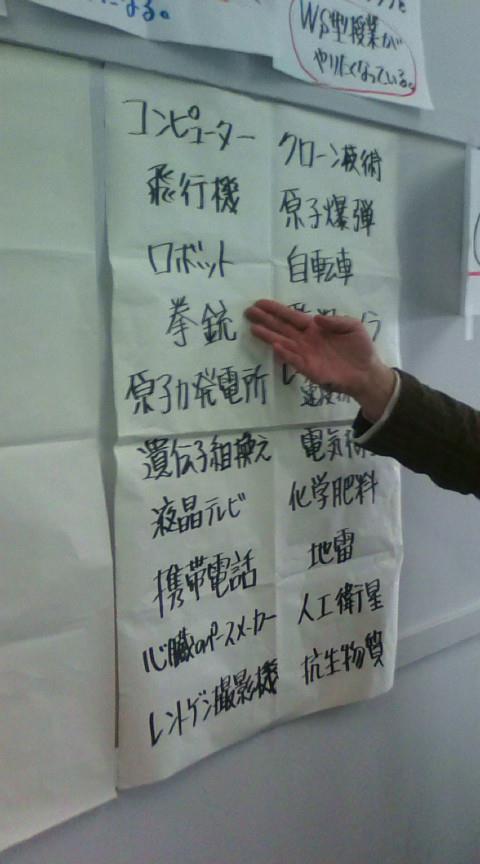 なる。
WS型授業が
やりにくなっている。
コンピューター
飛行機
ロボット
拳銃
原子力発電所
遺伝子組換え
液晶テレビ
携帯電話
心臓のペースメーカー
レントゲン撮影機
クローン技術
原子爆弾
自転車
電気
化学肥料
地雷
人工衛星
抗生物質